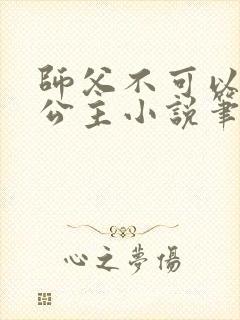 師父不可以
公主小說筆
心之夢傷